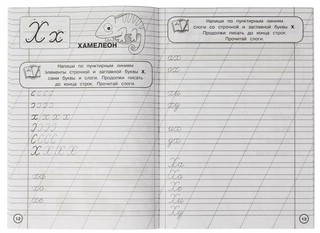 Х х
ХАМЕЛЕОН
Напиши по пунктирным линиям
элементы строчной и заглавной буквы Х,
сами буквы и слоги. Продолжи писать
до конца строк. Прочитай слоги.
х х х х х
Х Х Х Х
ха
хо
хе
12
Напиши по пунктирным линиям
слоги со строчной и заглавной буквы Х.
Продолжи писать до конца строк.
Прочитай слоги.
ах
ох
ху
их
ух
Ха
Хо
Хе
Хи
Ху
13